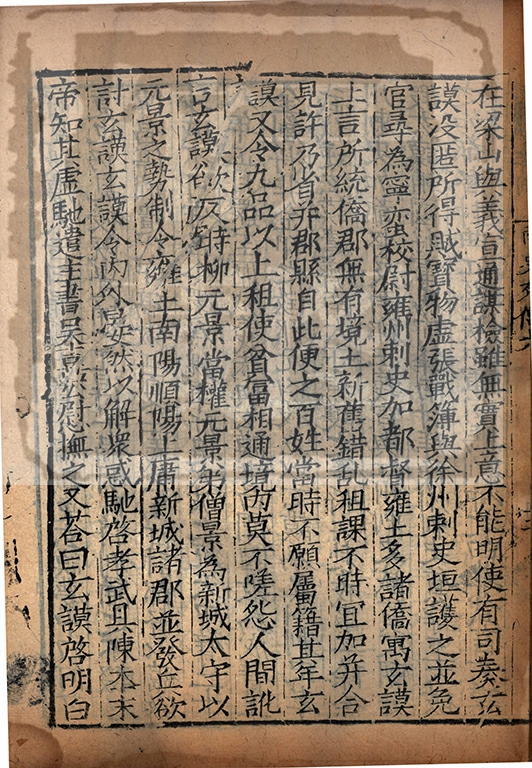 在梁山與義宣通謀檢雖無實上意不能明使有司奏玄
謨没匿所得賊寳物虛張戰簿與徐州刺史垣護之並免
官尋為寧蠻校尉雍州刺史加都督雍土多諸僑寓玄謨
上言所統僑郡無有境土新舊錯亂租課不時宜加并合
見許乃省并郡縣自此便之百姓當時不願屬籍其年玄
謨又令九品以上租使貧富相通境内莫不嗟怨人間訛
言玄謨欲反時柳元景當權元景弟僧景為新城太守以
元景之勢制令雍土南陽順陽上庸新城諸郡並發兵欲
討玄謨玄謨令内外晏然以解衆惑馳啓孝武具陳本末
帝知其虛馳遣主書吳喜公慰撫之又荅曰玄謨啓明白